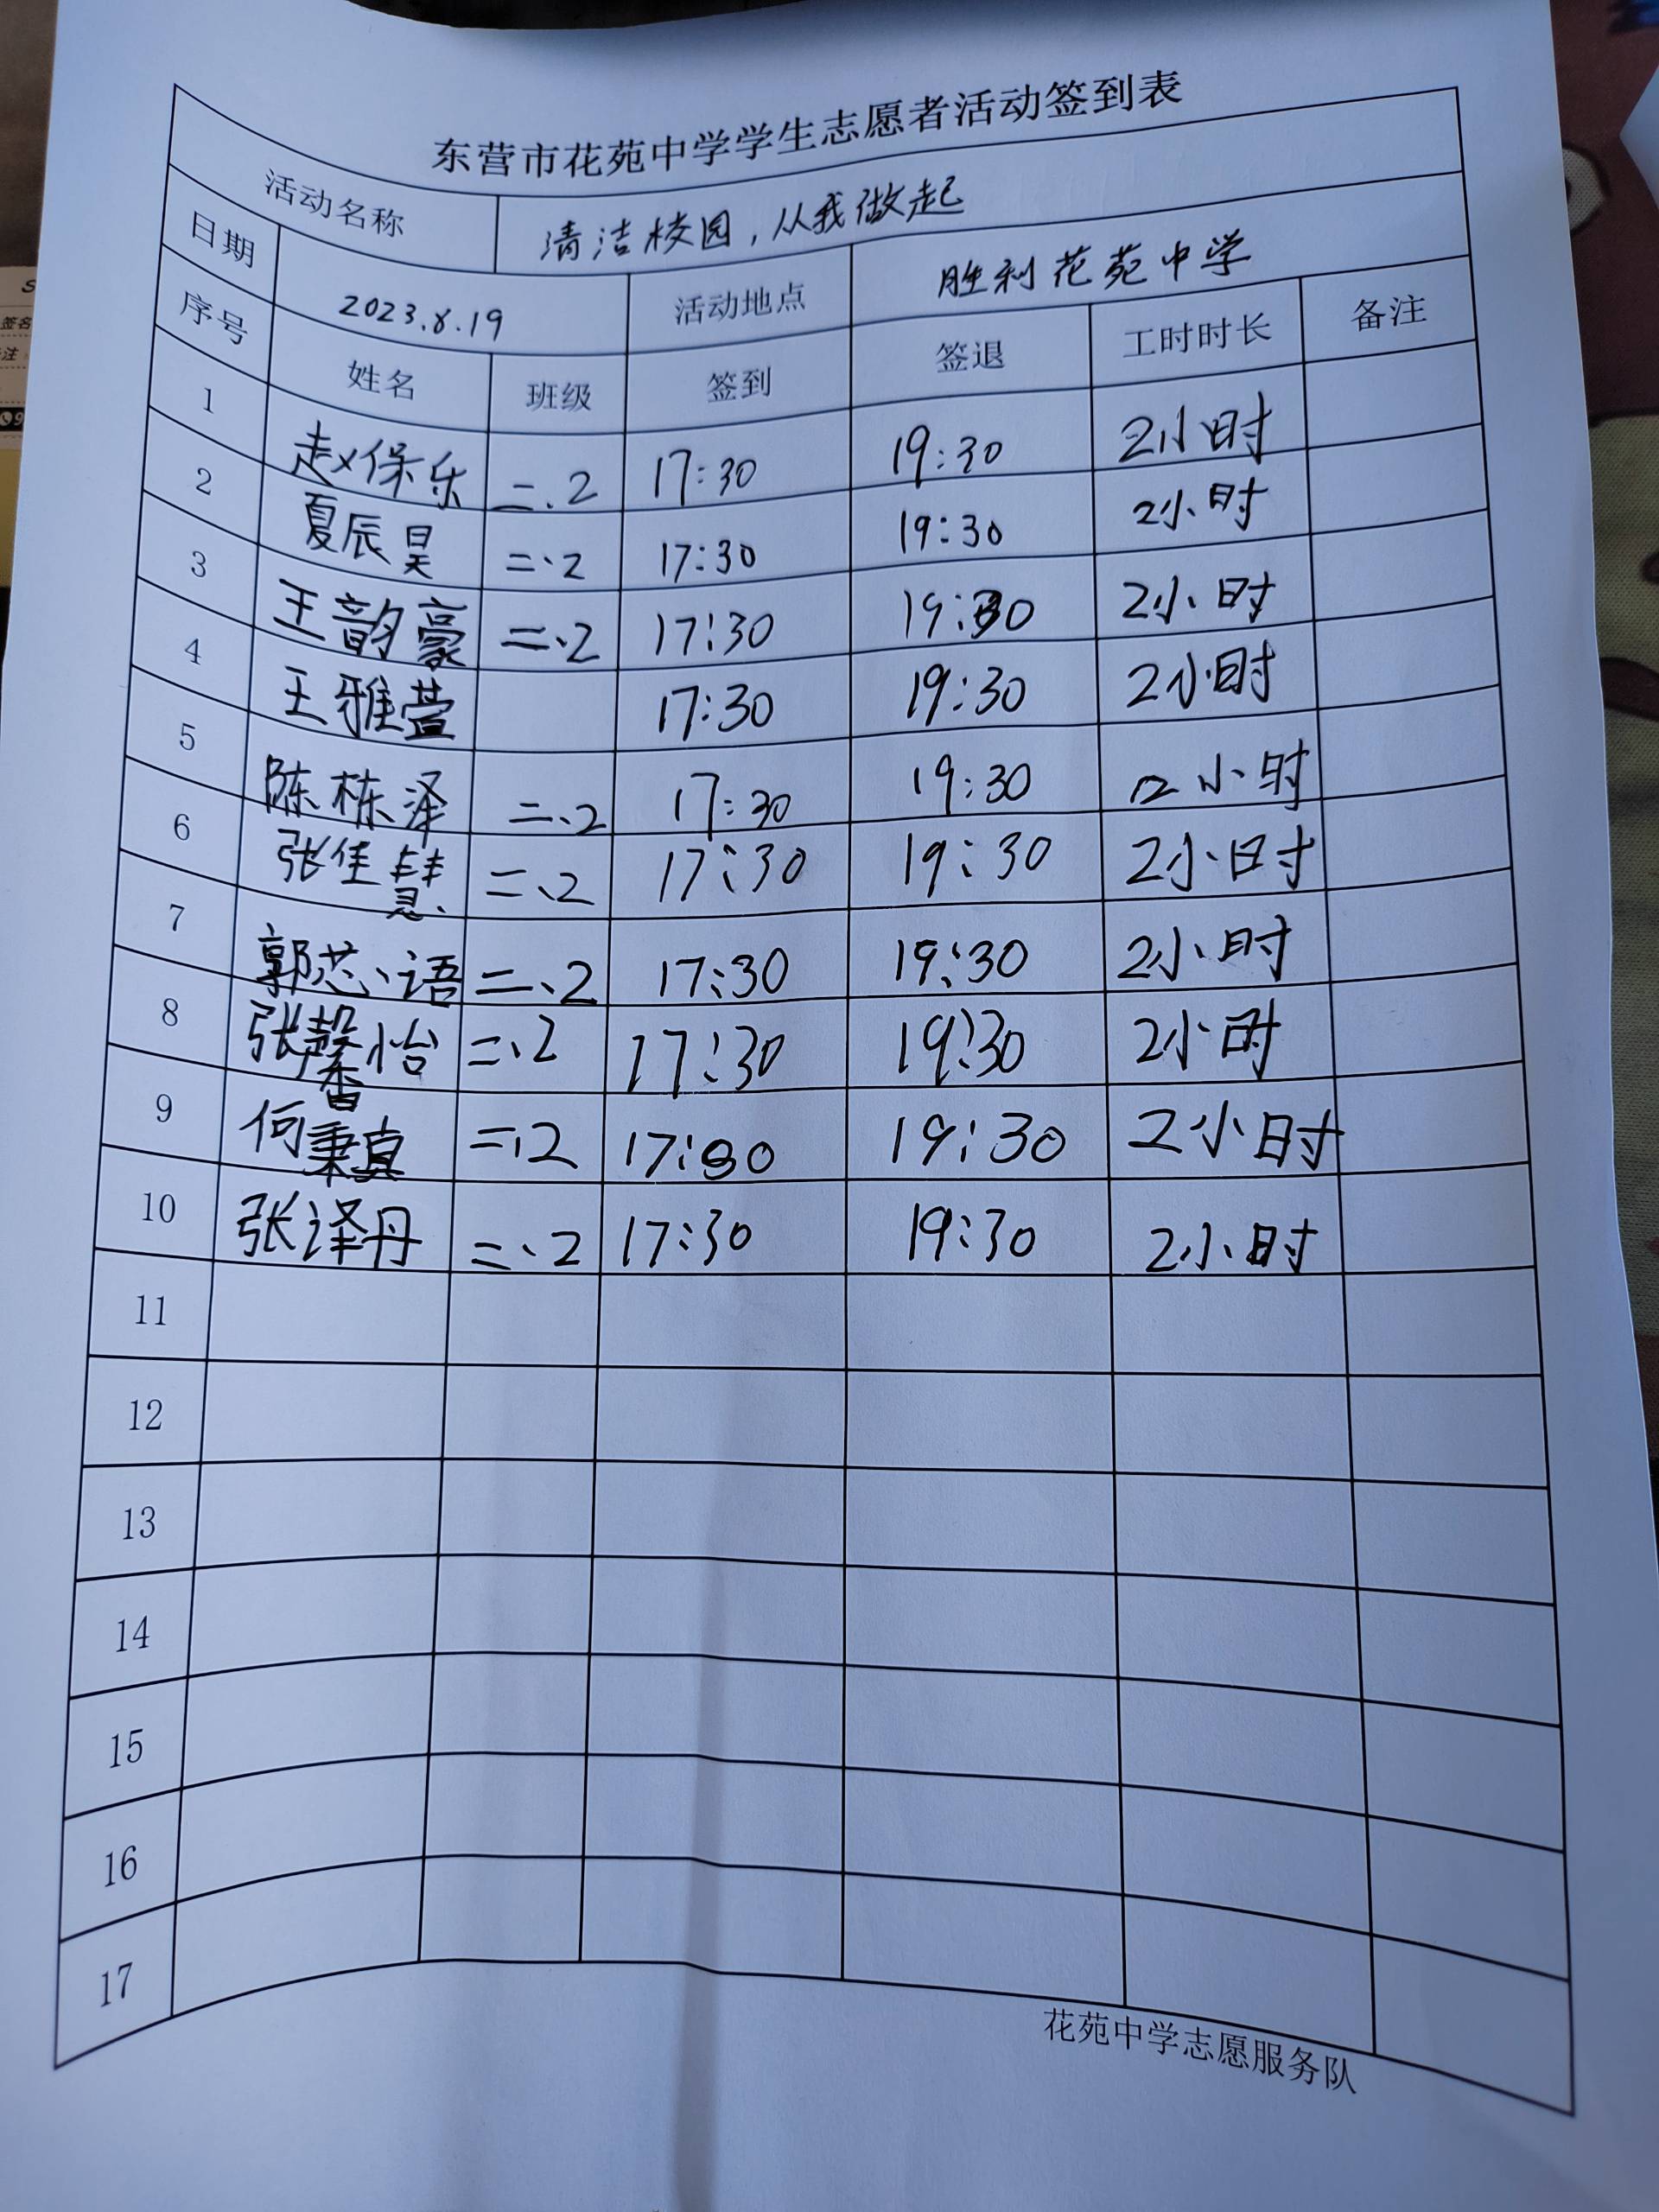 东营市花苑中学学生志愿者活动签到表
活动名称 清洁校园，从我做起
日期 2023.8.19 活动地点 胜利花苑中学
序号 姓名 班级 签到 签退 工时时长 备注
1 赵保乐 二.2 17:30 19:30 2小时
2 夏辰昊 二.2 17:30 19:30 2小时
3 王韵豪 二、2 17:30 19:30 2小时
4 王雅萱 17:30 19:30 2小时
5 陈栋泽 二、2 17:30 19:30 2小时
6 张佳慧 二、2 17:30 19:30 2小时
7 郭芯语 二、2 17:30 19:30 2小时
8 张馨怡 二、2 17:30 19:30 2小时
9 何秉真 二、2 17:30 19:30 2小时
10 张泽丹 二、2 17:30 19:30 2小时
11
12
13
14
15
16
17
花苑中学志愿服务队
签名